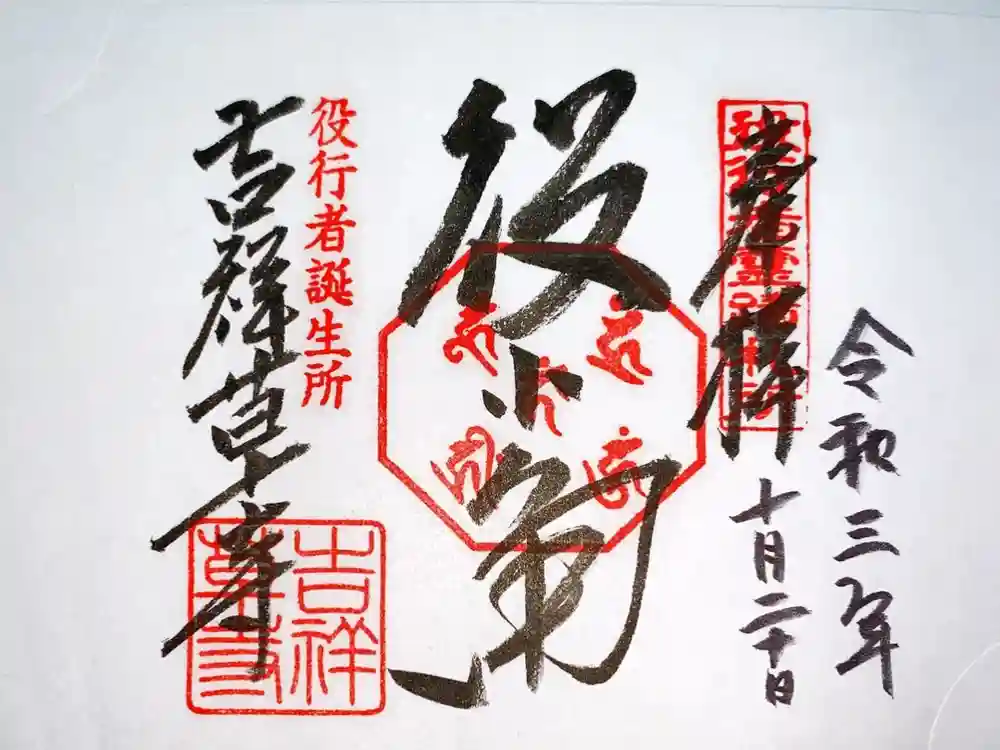 令和三年
十月二十日
奉拝
役行者靈蹟札所
役小角
役行者誕生所
吉祥草寺
吉祥
草寺